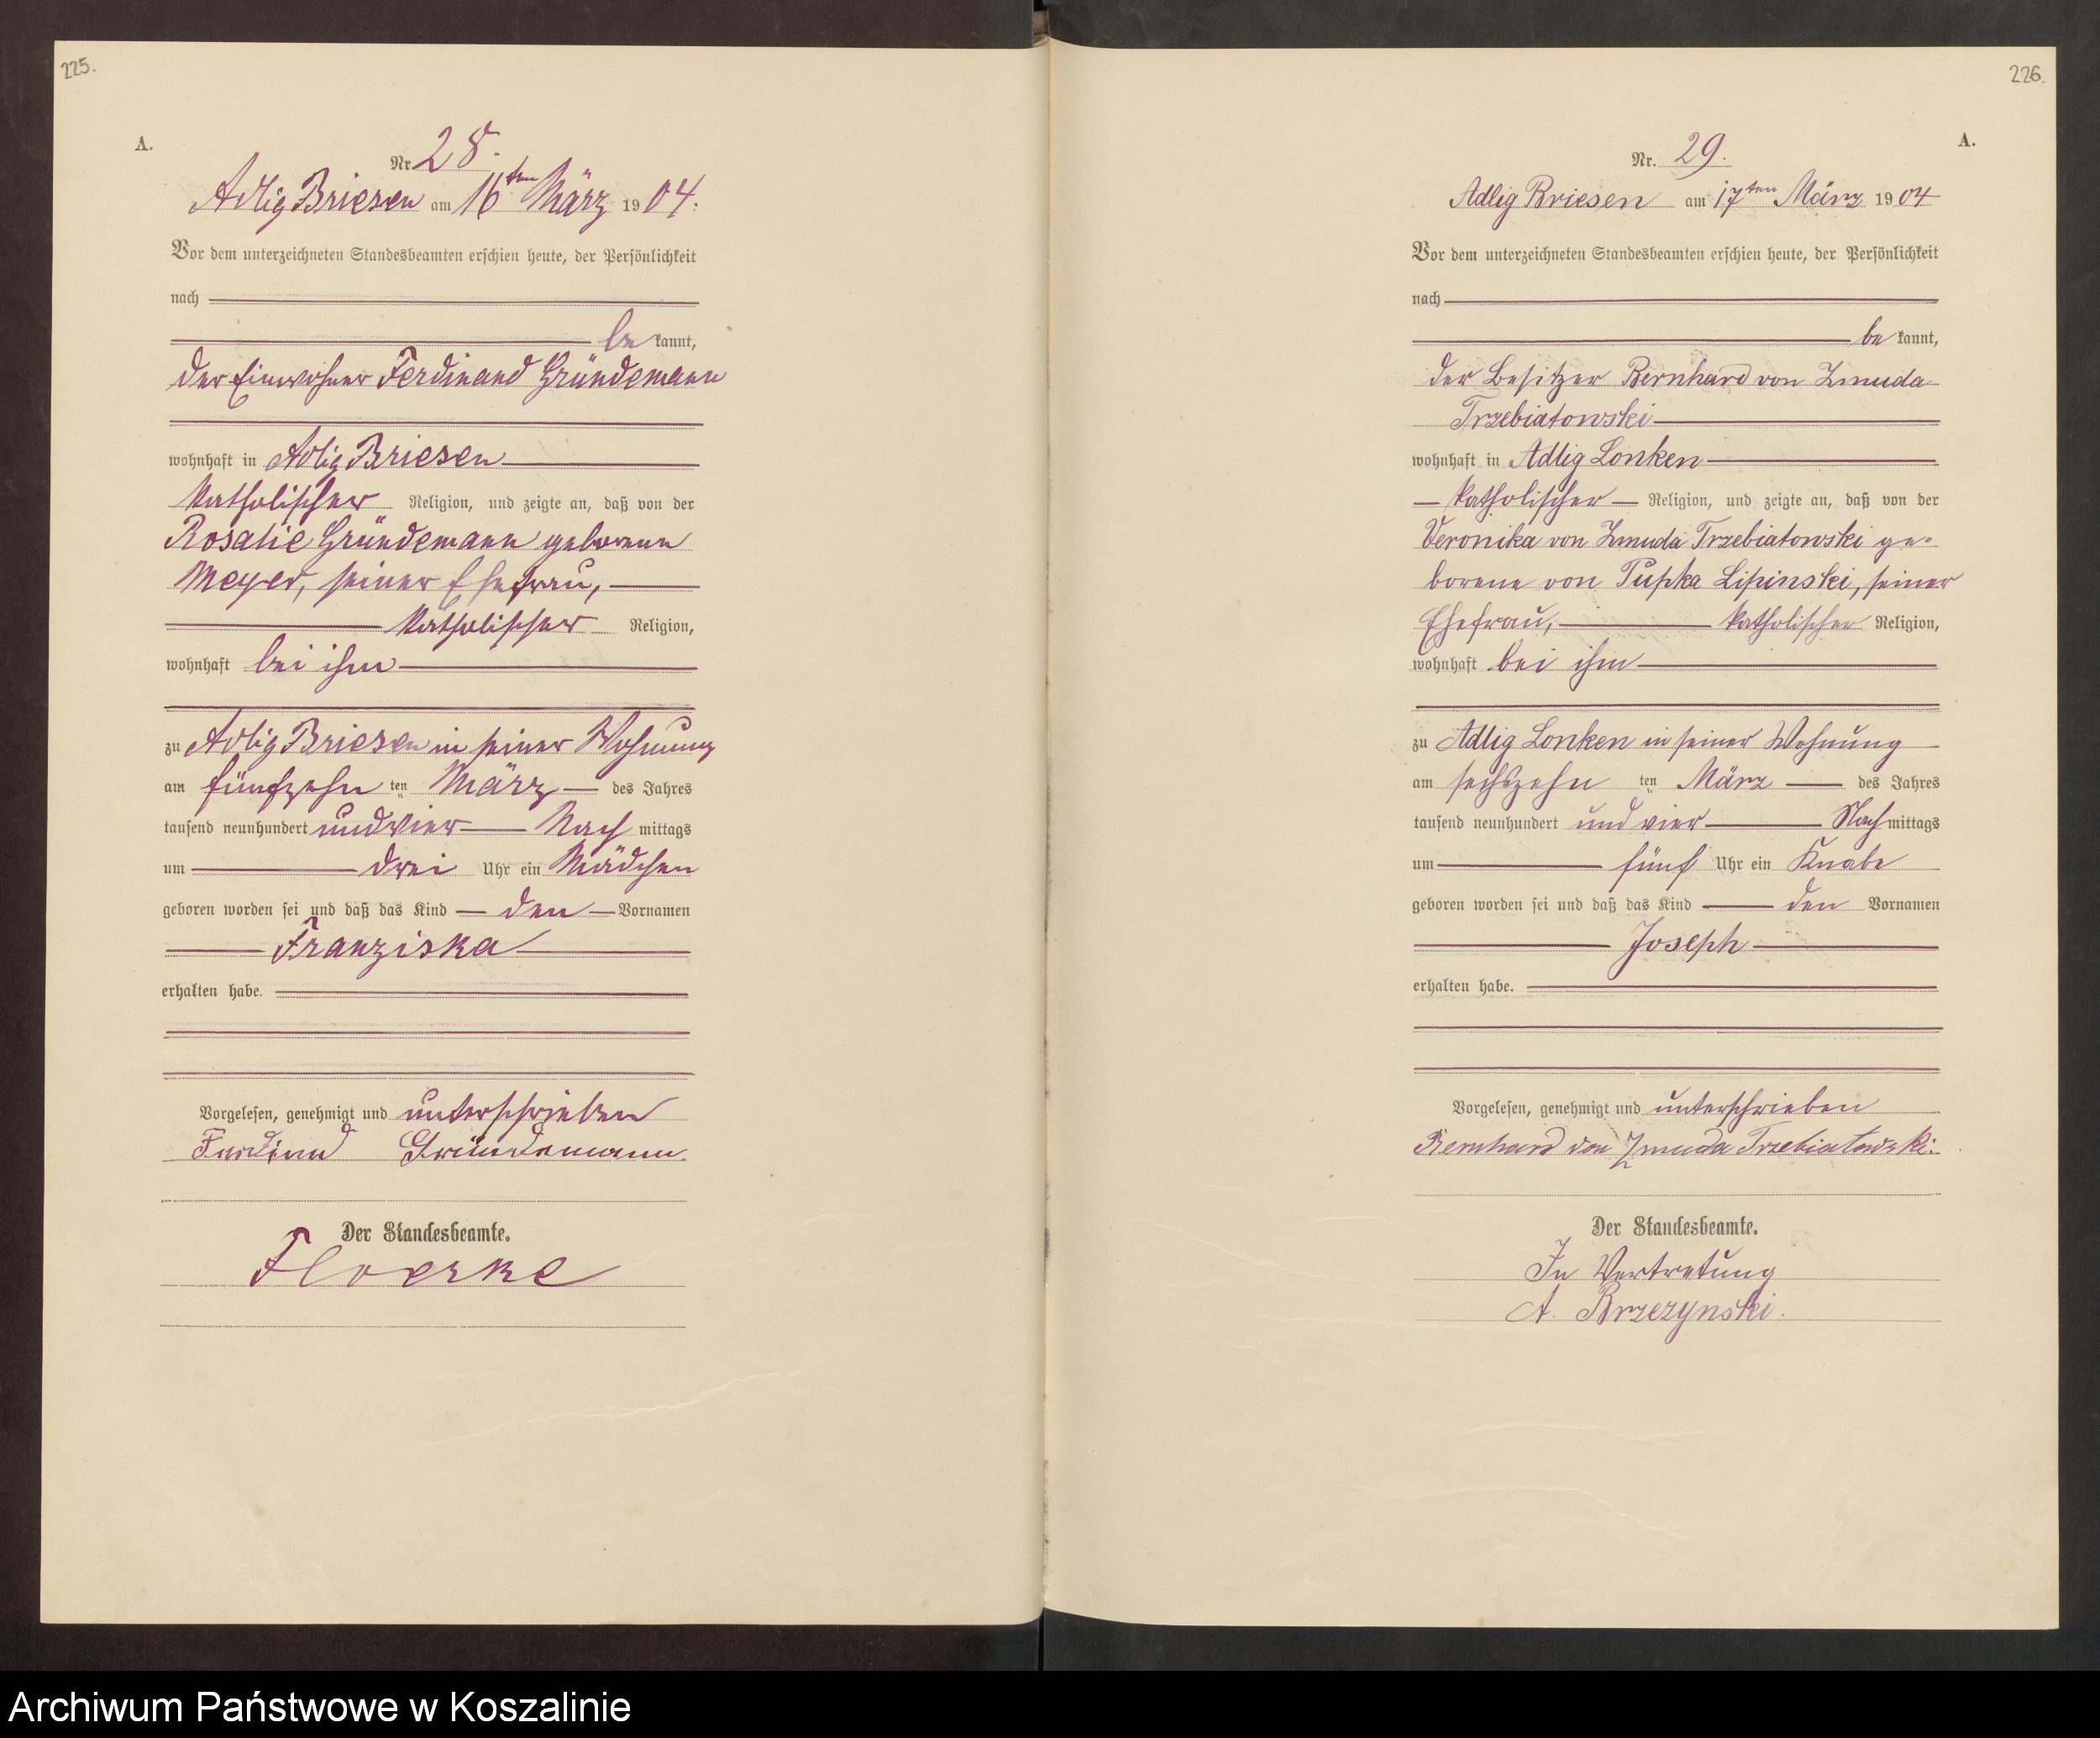 225.
A.
Nr 28.
Adlig Briesen am 16ten März 1904.
Vor dem unterzeichneten Standesbeamten erschien heute, der Persönlichkeit
nach
be kannt,
der Einwohner Ferdinand Gründemann
wohnhaft in Adlig Briesen
katholischer Religion, und zeigte an, daß von der
Rosalie Gründemann geborene
Meyer, seiner Ehefrau,
katholischer Religion,
wohnhaft bei ihm
zu Adlig Briesen in seiner Wohnung
am fünfzehn ten März des Jahres
tausend neunhundert und vier Nach mittags
um drei Uhr ein Mädchen
geboren worden sei und daß das Kind den Vornamen
Franziska
erhalten habe.
Vorgelesen, genehmigt und unterschrieben
Ferdinand Gründemann
Der Standesbeamte.
Floerke
226.
A.
Nr. 29.
Adlig Briesen am 17ten März 1904
Vor dem unterzeichneten Standesbeamten erschien heute, der Persönlichkeit
nach
be kannt,
der Besitzer Bernhard von Zmuda
Trzebiatowski
wohnhaft in Adlig Lonken
katholischer Religion, und zeigte an, daß von der
Veronika von Zmuda Trzebiatowski ge-
borene von Pupka Lipinski, seiner
Ehefrau, katholischer Religion,
wohnhaft bei ihm
zu Adlig Lonken in seiner Wohnung
am sechszehn ten März des Jahres
tausend neunhundert und vier Nach mittags
um fünf Uhr ein Knabe
geboren worden sei und daß das Kind den Vornamen
Joseph
erhalten habe.
Vorgelesen, genehmigt und unterschrieben
Bernhard von Zmuda Trzebiatowski.
Der Standesbeamte.
In Vertretung
A. Brzezynski.
Archiwum Państwowe w Koszalinie